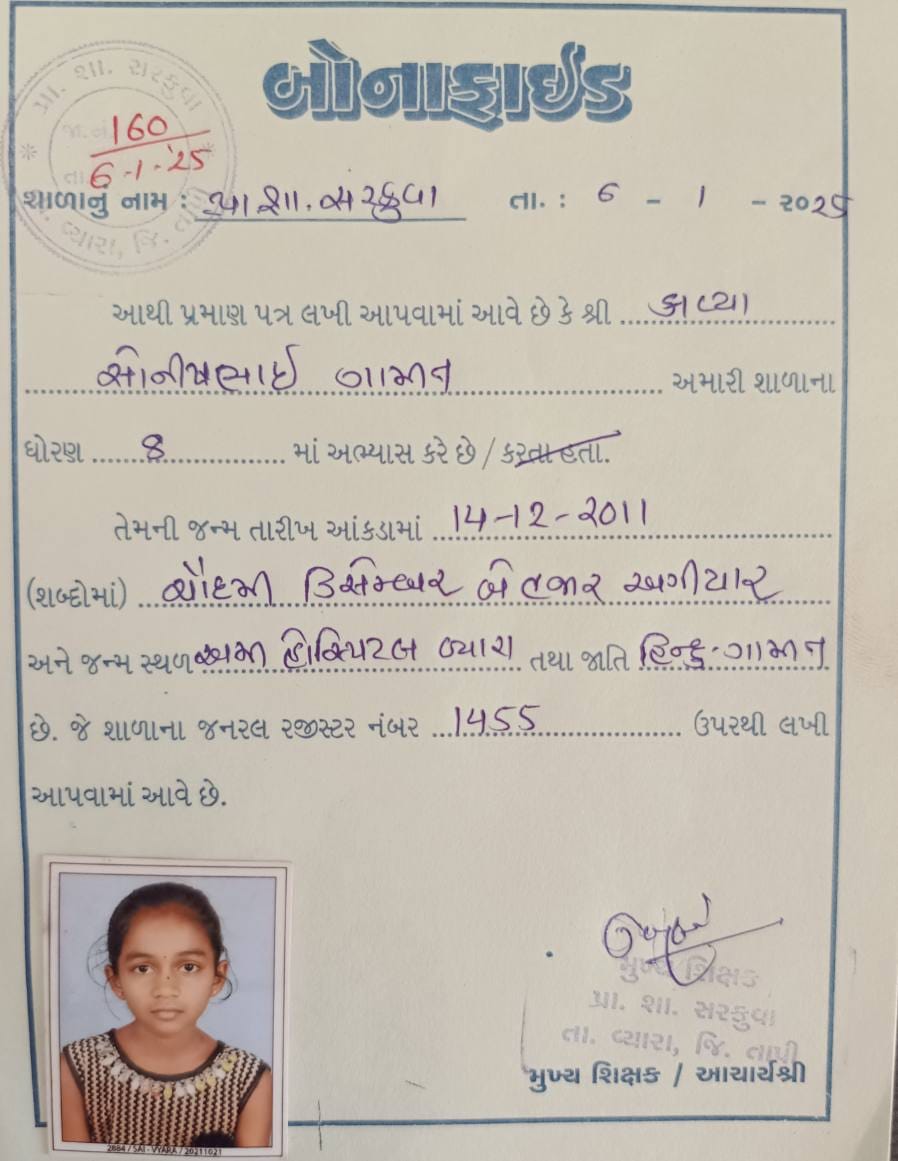 બોનાફાઈડ
પ્રા. શા. સરકુવા
જા.નં. 160
તા. 6-1-'25
વ્યારા, જિ. તાપી
શાળાનું નામ : પ્રા શા. સરકુવા તા. : ૬ - ૧ - ૨૦૨૫
આથી પ્રમાણ પત્ર લખી આપવામાં આવે છે કે શ્રી કાવ્યા
ગામીત અમારી શાળાના
ધોરણ 8 માં અભ્યાસ કરે છે / કરતા હતા.
તેમની જન્મ તારીખ આંકડામાં 14-12-2011
(શબ્દોમાં) ચૌદમી ડિસેમ્બર બે હજાર અગીયાર
અને જન્મ સ્થળ હોસ્પિટલ વ્યારા તથા જાતિ હિન્દુ-ગામીત
છે. જે શાળાના જનરલ રજીસ્ટર નંબર 1455 ઉપરથી લખી
આપવામાં આવે છે.
મુખ્ય શિક્ષક
પ્રા. શા. સરકુવા
તા. વ્યારા, જિ. તાપી
મુખ્ય શિક્ષક / આચાર્યશ્રી
2884 / SAI - VYARA / 20211021